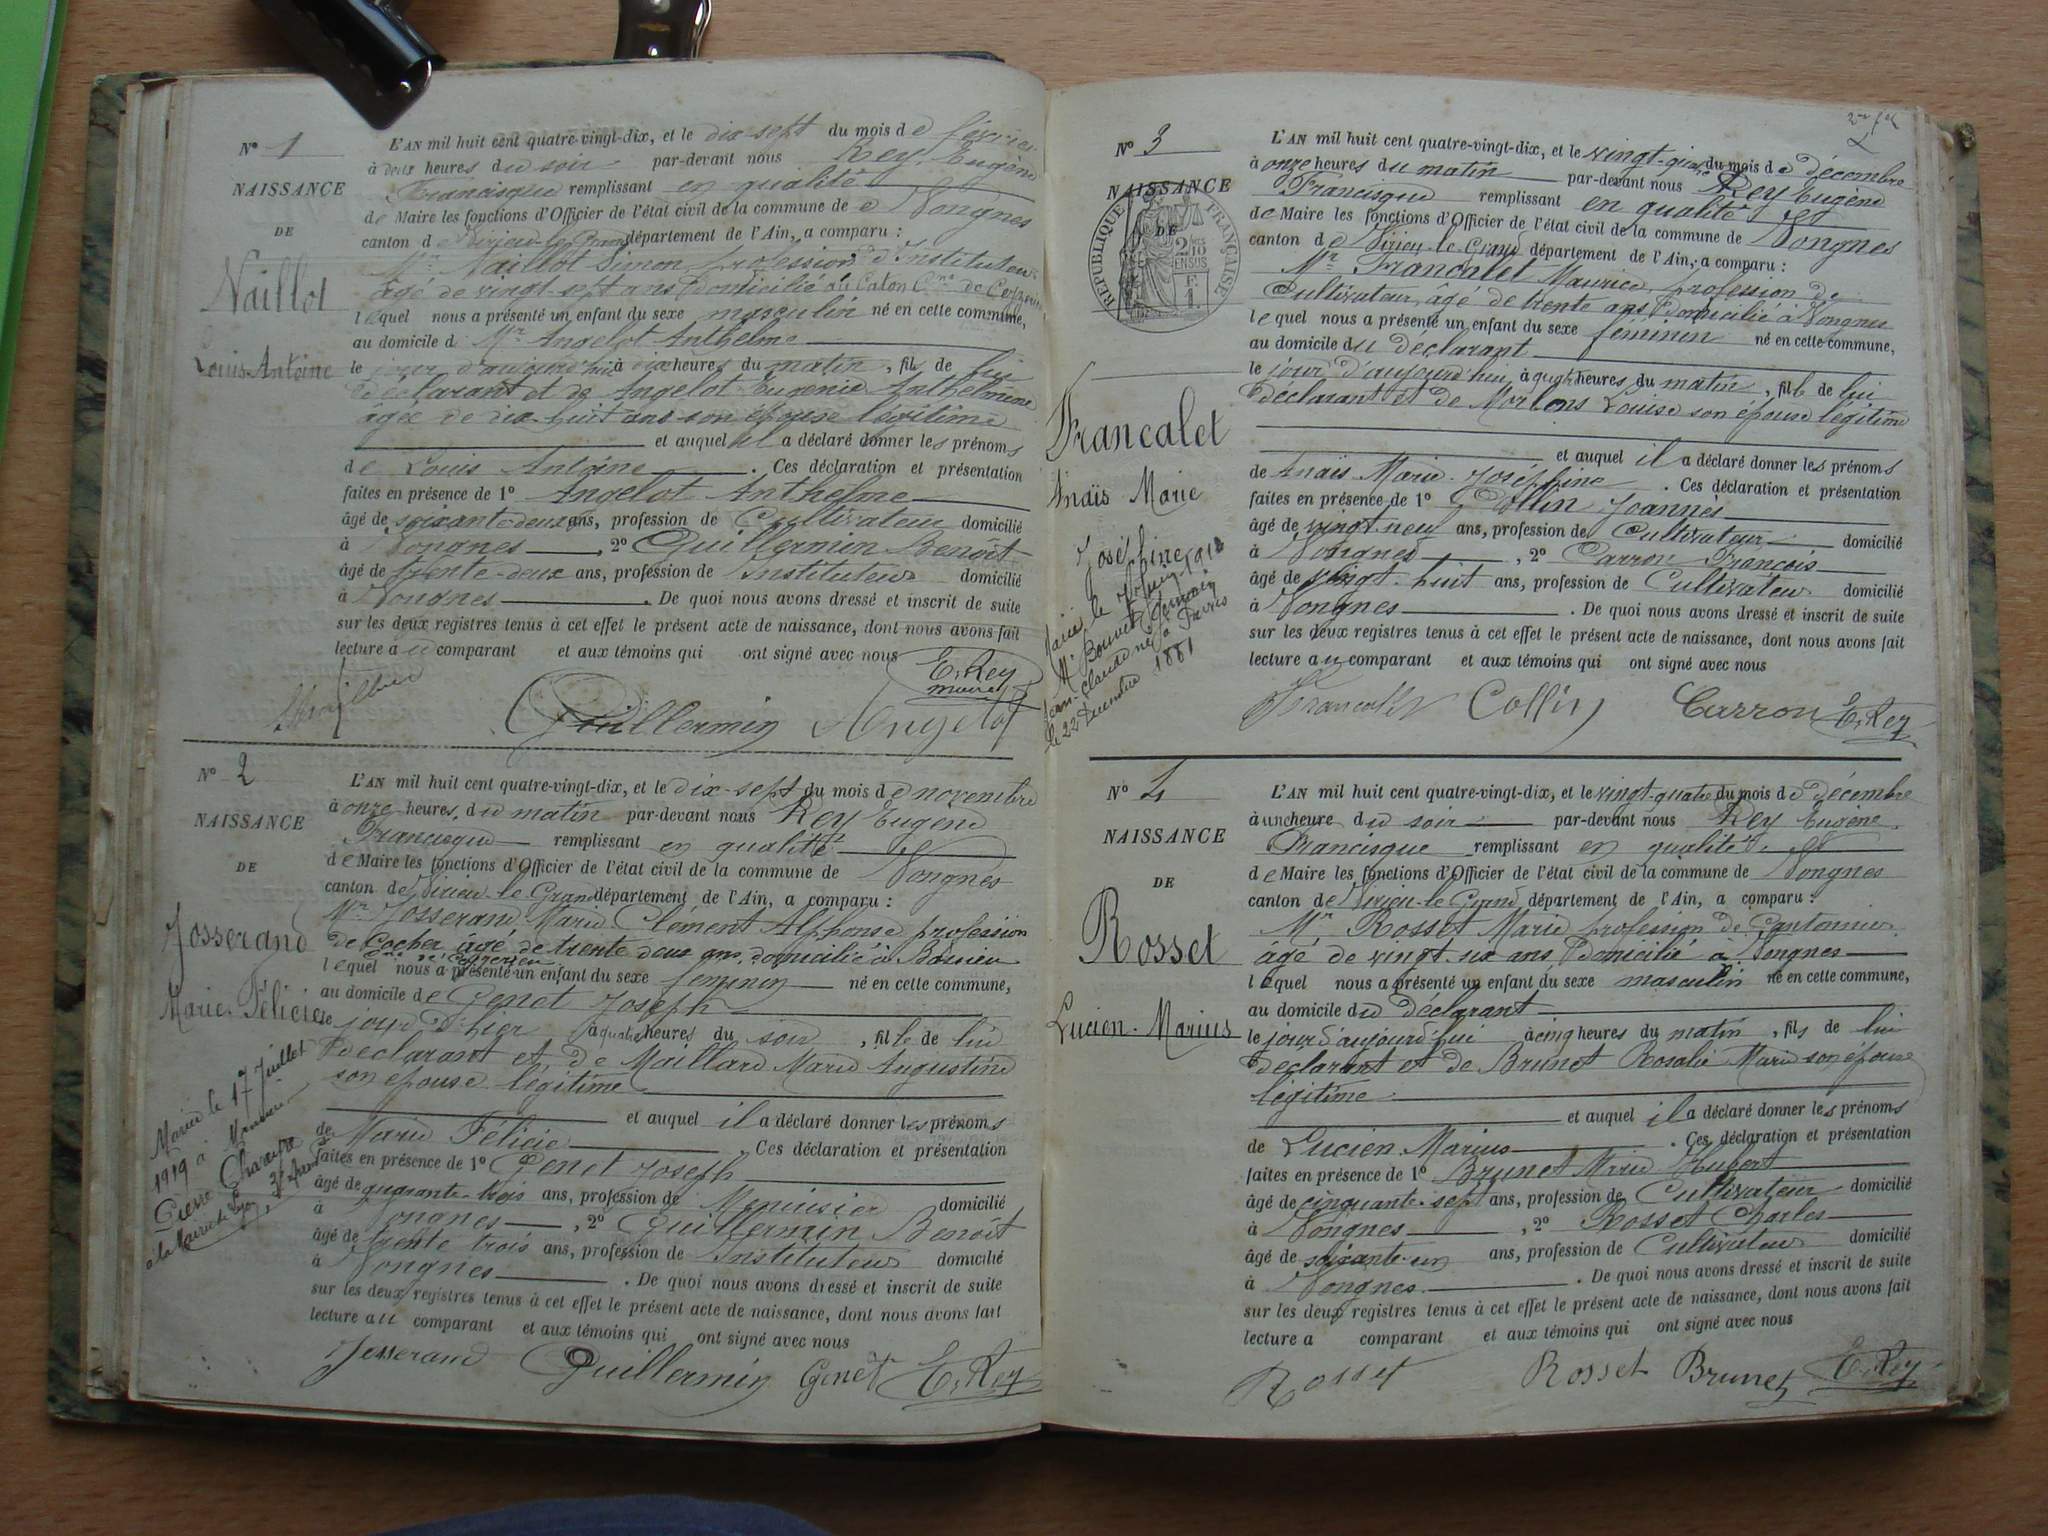 N° 1
NAISSANCE
DE
Naillot
Louis-Antoine
L'AN mil huit cent quatre-vingt-dix, et le dix-sept du mois de février
à deux heures du soir par-devant nous Rey Eugène
Francisque remplissant en qualité
de Maire les fonctions d'Officier de l'état civil de la commune de Vongnes
canton de Virieu-le-Grand département de l'Ain, a comparu :
Mr Naillot Simon profession d'Instituteur
âgé de vingt-sept ans domicilié au Caton Cne de Ceyzérieu
lequel nous a présenté un enfant du sexe masculin né en cette commune,
au domicile d Mr Angelot Anthelme
le jour d'aujourd'hui à dix heures du matin, fils de lui
déclarant et de Angelot Eugénie Anthelmine
âgée de dix-huit ans son épouse légitime
et auquel il a déclaré donner les prénoms
de Louis Antoine. Ces déclaration et présentation
faites en présence de 1° Angelot Anthelme
âgé de soixante-deux ans, profession de Cultivateur domicilié
à Vongnes, 2° Guillermin Benoît
âgé de trente-deux ans, profession de Instituteur domicilié
à Vongnes. De quoi nous avons dressé et inscrit de suite
sur les deux registres tenus à cet effet le présent acte de naissance, dont nous avons fait
lecture au comparant et aux témoins qui ont signé avec nous
E. Rey
maire
Guillermin Angelot
N° 2
NAISSANCE
DE
Josserand
Marie-Félicie
Mariée le 17 juillet
1919 à
Pierre
à la Mairie de Lyon, 3e
L'AN mil huit cent quatre-vingt-dix, et le dix-sept du mois de novembre
à onze heures du matin par-devant nous Rey Eugène
Francisque remplissant en qualité
de Maire les fonctions d'Officier de l'état civil de la commune de Vongnes
canton de Virieu-le-Grand département de l'Ain, a comparu :
Mr Josserand Marie Clément Alphonse profession
de Cocher âgé de trente deux ans domicilié à
Cne de Ceyzérieu
lequel nous a présenté un enfant du sexe féminin né en cette commune,
au domicile de Genet Joseph
le jour d'hier à quatre heures du soir, fille de lui
déclarant et de Maillard Marie Augustine
son épouse légitime
et auquel il a déclaré donner les prénoms
de Marie Félicie. Ces déclaration et présentation
faites en présence de 1° Genet Joseph
âgé de quarante-trois ans, profession de Menuisier domicilié
à Vongnes, 2° Guillermin Benoît
âgé de trente trois ans, profession de Instituteur domicilié
à Vongnes. De quoi nous avons dressé et inscrit de suite
sur les deux registres tenus à cet effet le présent acte de naissance, dont nous avons fait
lecture au comparant et aux témoins qui ont signé avec nous
Josserand Guillermin Genet E. Rey
N° 3
NAISSANCE
DE
RÉPUBLIQUE FRANÇAISE
2/10 ENSUS
1F.
Francalet
Anaïs Marie
Joséphine
Mariée le juin 1912
M. Bouvet Germain
Jean-Claude né à
le 22 décembre 1881
L'AN mil huit cent quatre-vingt-dix, et le vingt-quatre du mois de décembre
à onze heures du matin par-devant nous Rey Eugène
Francisque remplissant en qualité
de Maire les fonctions d'Officier de l'état civil de la commune de Vongnes
canton de Virieu-le-Grand département de l'Ain, a comparu :
Mr Francalet Maurice, profession de
Cultivateur, âgé de trente ans domicilié à Vongnes
lequel nous a présenté un enfant du sexe féminin né en cette commune,
au domicile du déclarant
le jour d'aujourd'hui à quatre heures du matin, fille de lui
déclarant et de Louise son épouse légitime
et auquel il a déclaré donner les prénoms
de Anaïs Marie Joséphine. Ces déclaration et présentation
faites en présence de 1° Collin Joannès
âgé de vingt-neuf ans, profession de Cultivateur domicilié
à Vongnes, 2° Carron François
âgé de vingt-huit ans, profession de Cultivateur domicilié
à Vongnes. De quoi nous avons dressé et inscrit de suite
sur les deux registres tenus à cet effet le présent acte de naissance, dont nous avons fait
lecture au comparant et aux témoins qui ont signé avec nous
Francalet Collin Carron E. Rey
N° 4
NAISSANCE
DE
Rosset
Lucien-Marius
L'AN mil huit cent quatre-vingt-dix, et le vingt-quatre du mois de décembre
à une heure du soir par-devant nous Rey Eugène
Francisque remplissant en qualité
de Maire les fonctions d'Officier de l'état civil de la commune de Vongnes
canton de Virieu-le-Grand département de l'Ain, a comparu :
Mr Rosset Marie profession de Cantonnier
âgé de vingt-six ans domicilié à Vongnes
lequel nous a présenté un enfant du sexe masculin né en cette commune,
au domicile du déclarant
le jour d'aujourd'hui à cinq heures du matin, fils de lui
déclarant et de Brunet Rosalie Marie son épouse
légitime
et auquel il a déclaré donner les prénoms
de Lucien Marius. Ces déclaration et présentation
faites en présence de 1° Brunet Marie Hubert
âgé de cinquante-sept ans, profession de Cultivateur domicilié
à Vongnes, 2° Rosset Charles
âgé de soixante-un ans, profession de Cultivateur domicilié
à Vongnes. De quoi nous avons dressé et inscrit de suite
sur les deux registres tenus à cet effet le présent acte de naissance, dont nous avons fait
lecture a comparant et aux témoins qui ont signé avec nous
Rosset Rosset Brunet E. Rey